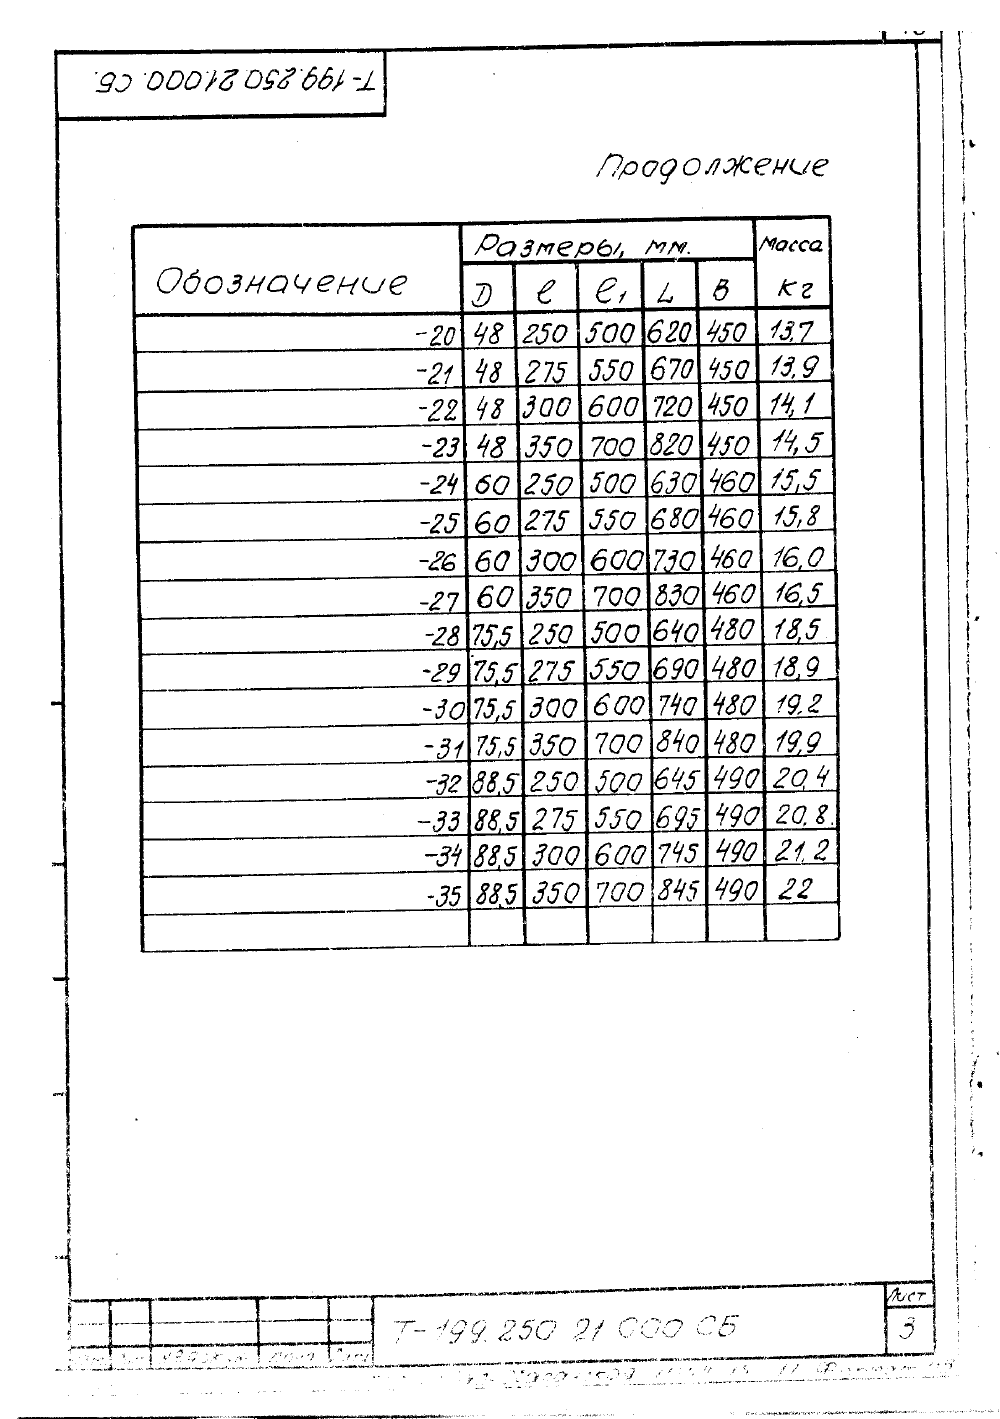 Т-199.250.21.000. СБ.
Продолжение
Обозначение Размеры, мм. Масса кг
D ℓ ℓ₁ L B
-20 48 250 500 620 450 13,7
-21 48 275 550 670 450 13,9
-22 48 300 600 720 450 14,1
-23 48 350 700 820 450 14,5
-24 60 250 500 630 460 15,5
-25 60 275 550 680 460 15,8
-26 60 300 600 730 460 16,0
-27 60 350 700 830 460 16,5
-28 75,5 250 500 640 480 18,5
-29 75,5 275 550 690 480 18,9
-30 75,5 300 600 740 480 19.2
-31 75,5 350 700 840 480 19,9
-32 88,5 250 500 645 490 20,4
-33 88,5 275 550 695 490 20.8.
-34 88,5 300 600 745 490 21.2
-35 88,5 350 700 845 490 22
Лист
Т-199.250 21 000 СБ 3